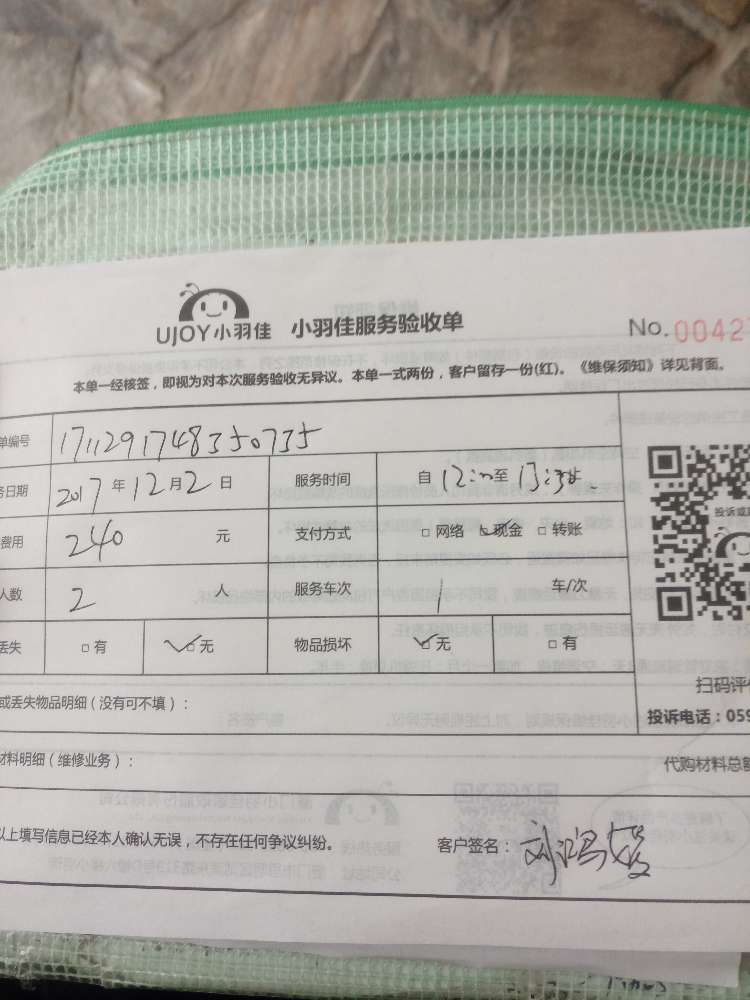 UJOY小羽佳 小羽佳服务验收单 No.0042
本单一经核签，即视为对本次服务验收无异议。本单一式两份，客户留存一份(红)。《维保须知》详见背面。
单编号 1711291748350735
务日期 2017年12月2日 服务时间 自12:
费用 240 元 支付方式 □网络 □现金 □转账
人数 2 人 服务车次 1 车/次
丢失 □有 □无 物品损坏 □无 □有
或丢失物品明细（没有可不填）：
材料明细（维修业务）：
以上填写信息已经本人确认无误，不存在任何争议纠纷。 客户签名：刘鸿
投诉或
扫码评
投诉电话：059
代购材料总